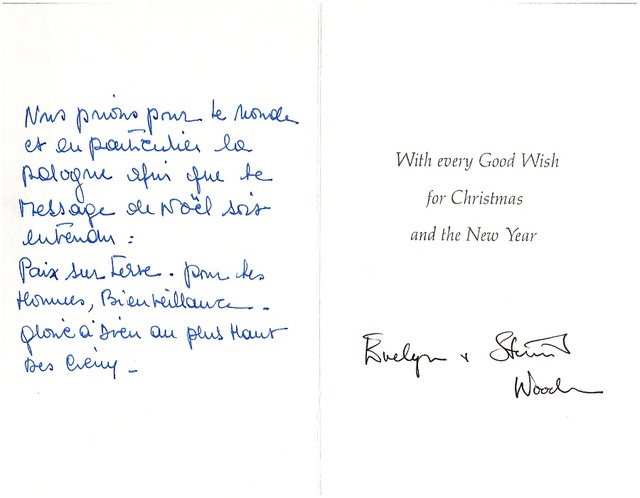 Nous prions pour le Monde
et en particulier la
Pologne afin que le
Message de Noël soit
entendu :
Paix sur Terre. pour les
Hommes, Bienveillance.
gloire à Dieu au plus Haut
Des Cieux.
With every Good Wish
for Christmas
and the New Year
Evelyn +